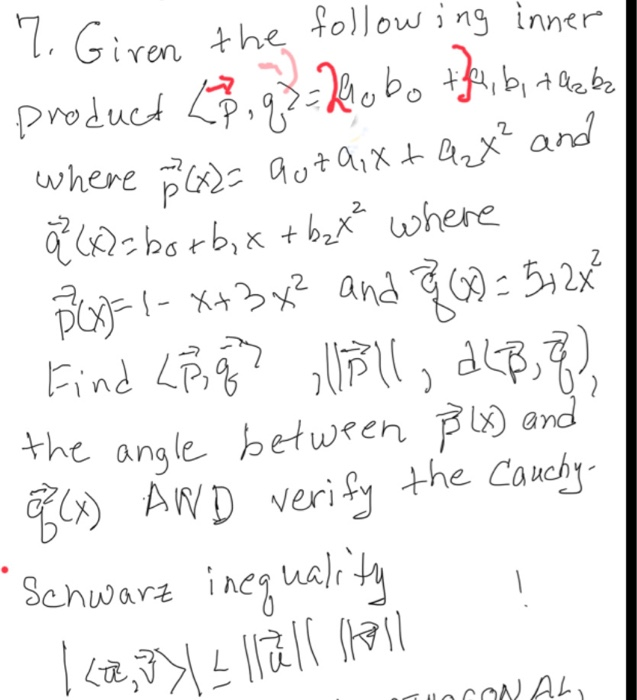 7. Given the following inner
product ⟨p⃗, q⃗⟩ = 2a₀b₀ + 3a₁b₁ + a₂b₂
where p⃗(x) = a₀ + a₁x + a₂x² and
q⃗(x) = b₀ + b₁x + b₂x² where
p⃗(x) = 1 - x + 3x² and q⃗(x) = 5+2x²
Find ⟨p⃗, q⃗⟩, ||p⃗||, d(p⃗, q⃗),
the angle between p⃗(x) and
q⃗(x) AND verify the Cauchy-
Schwarz inequality !
|⟨u⃗, v⃗⟩| ≤ ||u⃗|| ||v⃗||